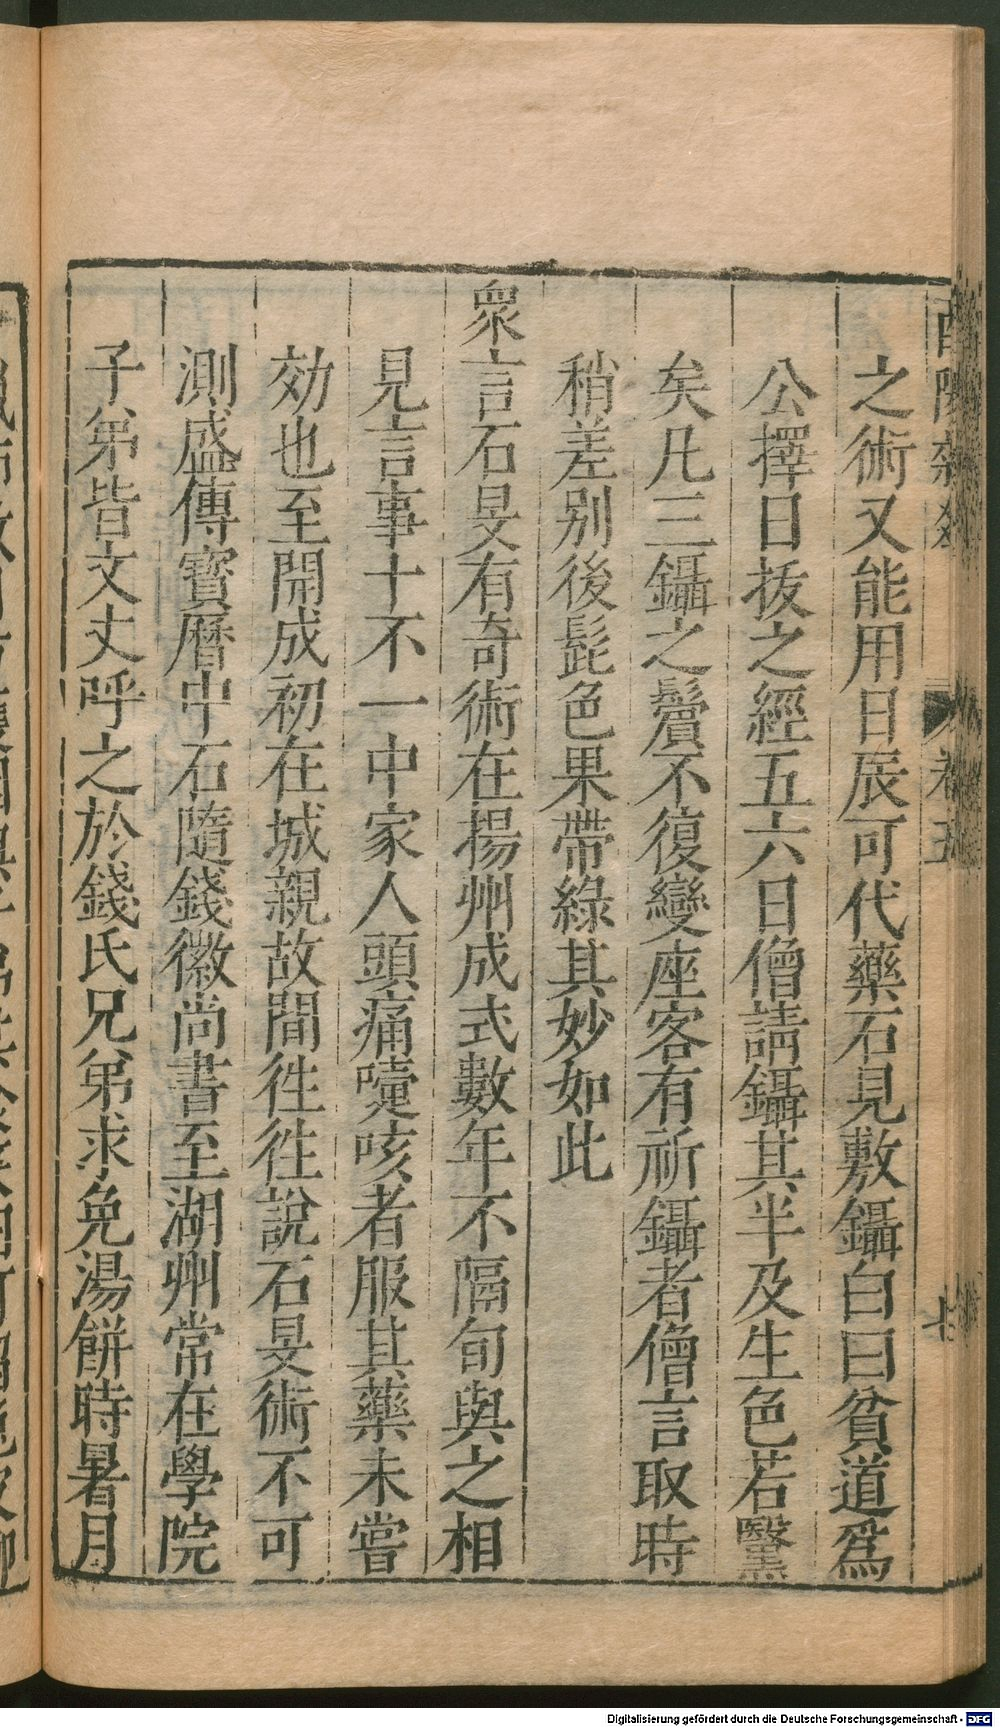 之術又能用日辰可代藥石見敷鑷白曰貧道爲
公擇日㧞之經五六日僧請鑷其半及生色若黳
矣凡三鑷之鬢不復變座客有祈鑷者僧言取時
稍差别後髭色果帶綠其妙如此
衆言石旻有奇術在揚州成式數年不隔旬與之相
見言事十不一中家人頭痛嚏咳者服其藥未嘗
効也至開成初在城親故間徃徃說石旻術不可
測盛傳寳曆中石隨錢徽尚書至湖州常在學院
子弟皆文丈呼之於錢氏兄弟求免湯餅時暑月
Digitalisierung gefördert durch die Deutsche Forschungsgemeinschaft - DFG